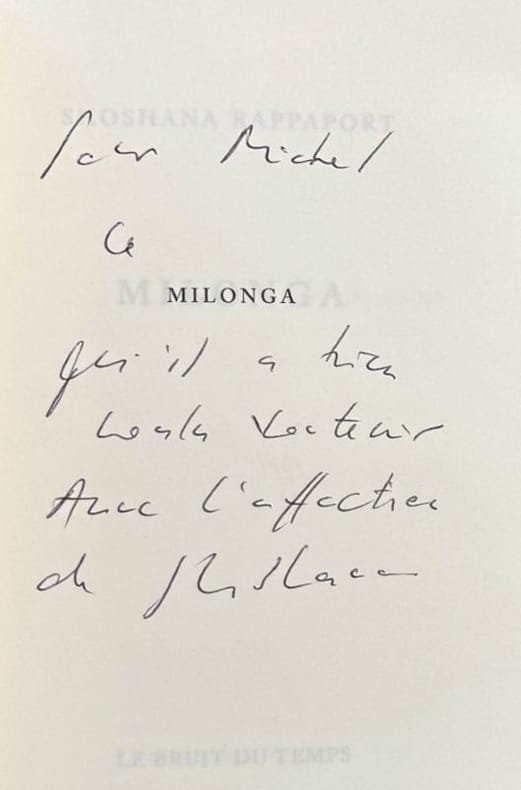 SHOSHANA RAPPAPORT
Pour Michel
Ce
MILONGA
MILONGA
qu'il a bien
voulu soutenir
Avec l'affection
de Shoshana
LE BRUIT DU TEMPS